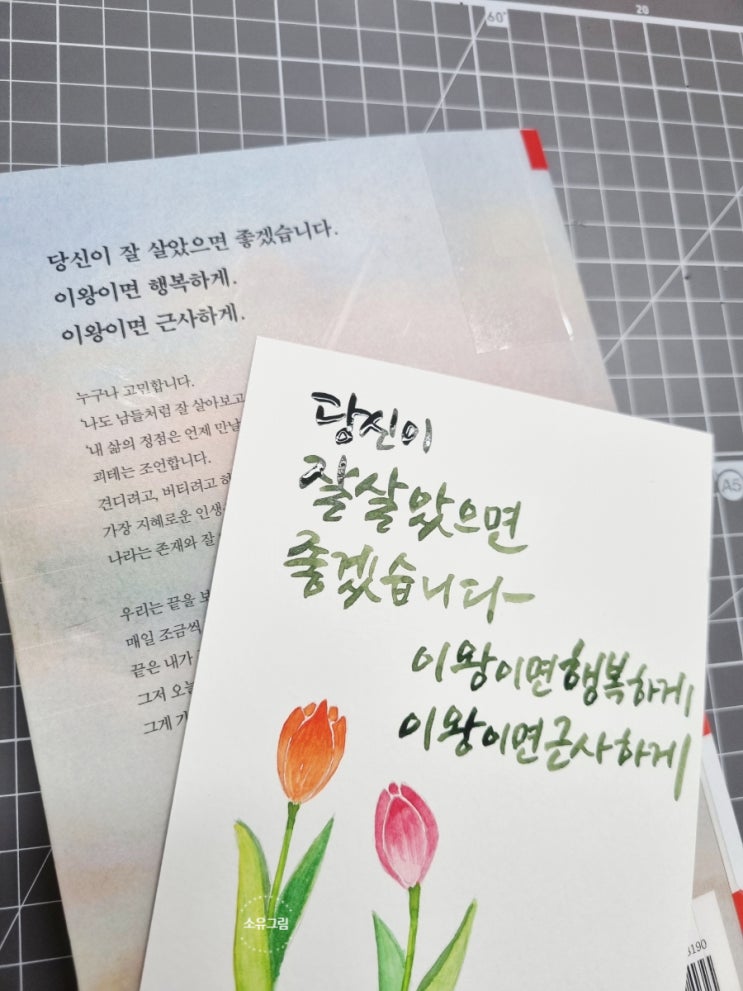 60°
20
당신이 잘 살았으면 좋겠습니다.
이왕이면 행복하게.
이왕이면 근사하게.
누구나 고민합니다.
'나도 남들처럼 잘 살아보고
'내 삶의 정점은 언제 만날
괴테는 조언합니다.
견디려고, 버티려고
가장 지혜로운
나라는 존재와 잘
우리는 끝을
매일 조금씩
끝은 내가
그저
그게
당신이
잘살았으면
좋겠습니다
이왕이면행복하게
이왕이면근사하게
A5
소유그림
3190